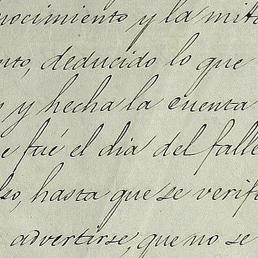 nocimiento y la mita
nto, deducido lo que
y hecha la cuenta
e fué el dia del falle
so, hasta que se verifi
advertirse, que no se